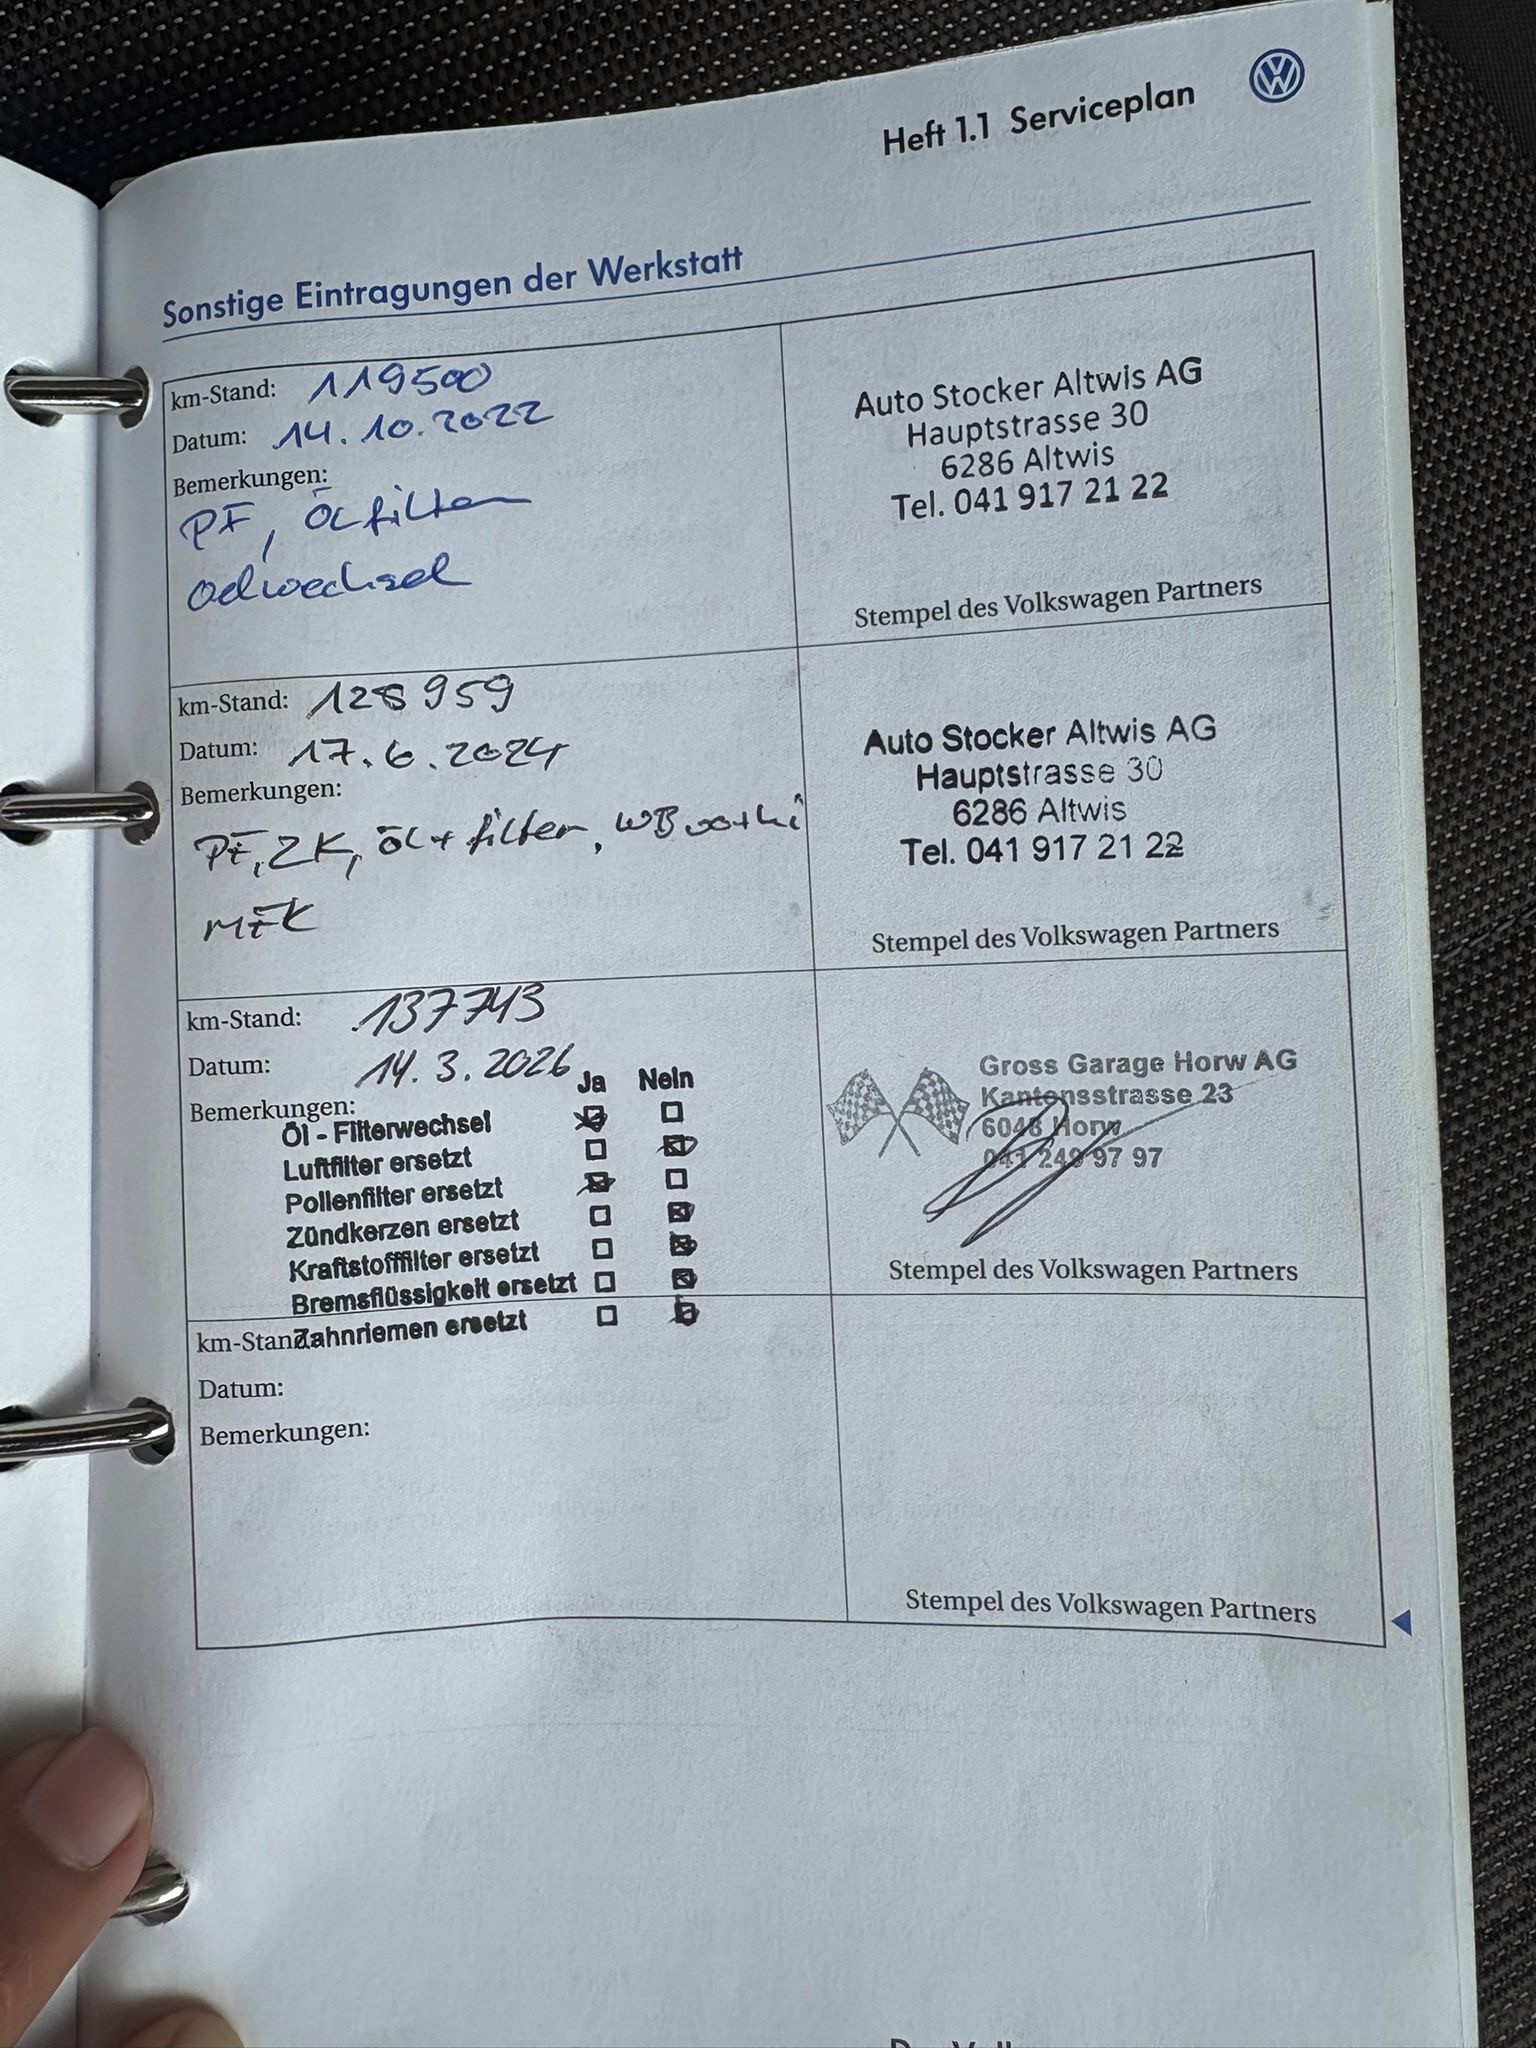 Heft 1.1 Serviceplan
Sonstige Eintragungen der Werkstatt
km-Stand: 119500
Datum: 14.10.2022
Bemerkungen:
PF, Ölfilter
Oelwechsel
Auto Stocker Altwis AG
Hauptstrasse 30
6286 Altwis
Tel. 041 917 21 22
Stempel des Volkswagen Partners
km-Stand: 128959
Datum: 17.6.2024
Bemerkungen:
PF, ZK, Öl + filter,
MFK
Auto Stocker Altwis AG
Hauptstrasse 30
6286 Altwis
Tel. 041 917 21 22
Stempel des Volkswagen Partners
km-Stand: 137743
Datum: 14.3.2026
Bemerkungen:
Ja Nein
Öl - Filterwechsel
Luftfilter ersetzt
Pollenfilter ersetzt
Zündkerzen ersetzt
Kraftstofffilter ersetzt
Bremsflüssigkeit ersetzt
Zahnriemen ersetzt
Gross Garage Horw AG
Kantonsstrasse 23
6048 Horw
041 249 97 97
Stempel des Volkswagen Partners
km-Stand
Datum:
Bemerkungen:
Stempel des Volkswagen Partners